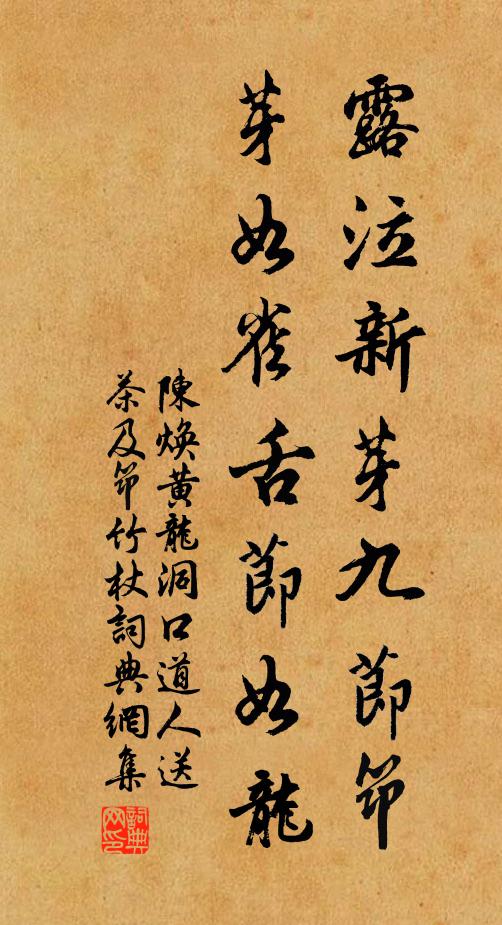 露泣新芽九節筇
芽如雀舌節如龍
陳煥黃龍洞口道人送
茶及筇竹杖詞典網集
詞典网印